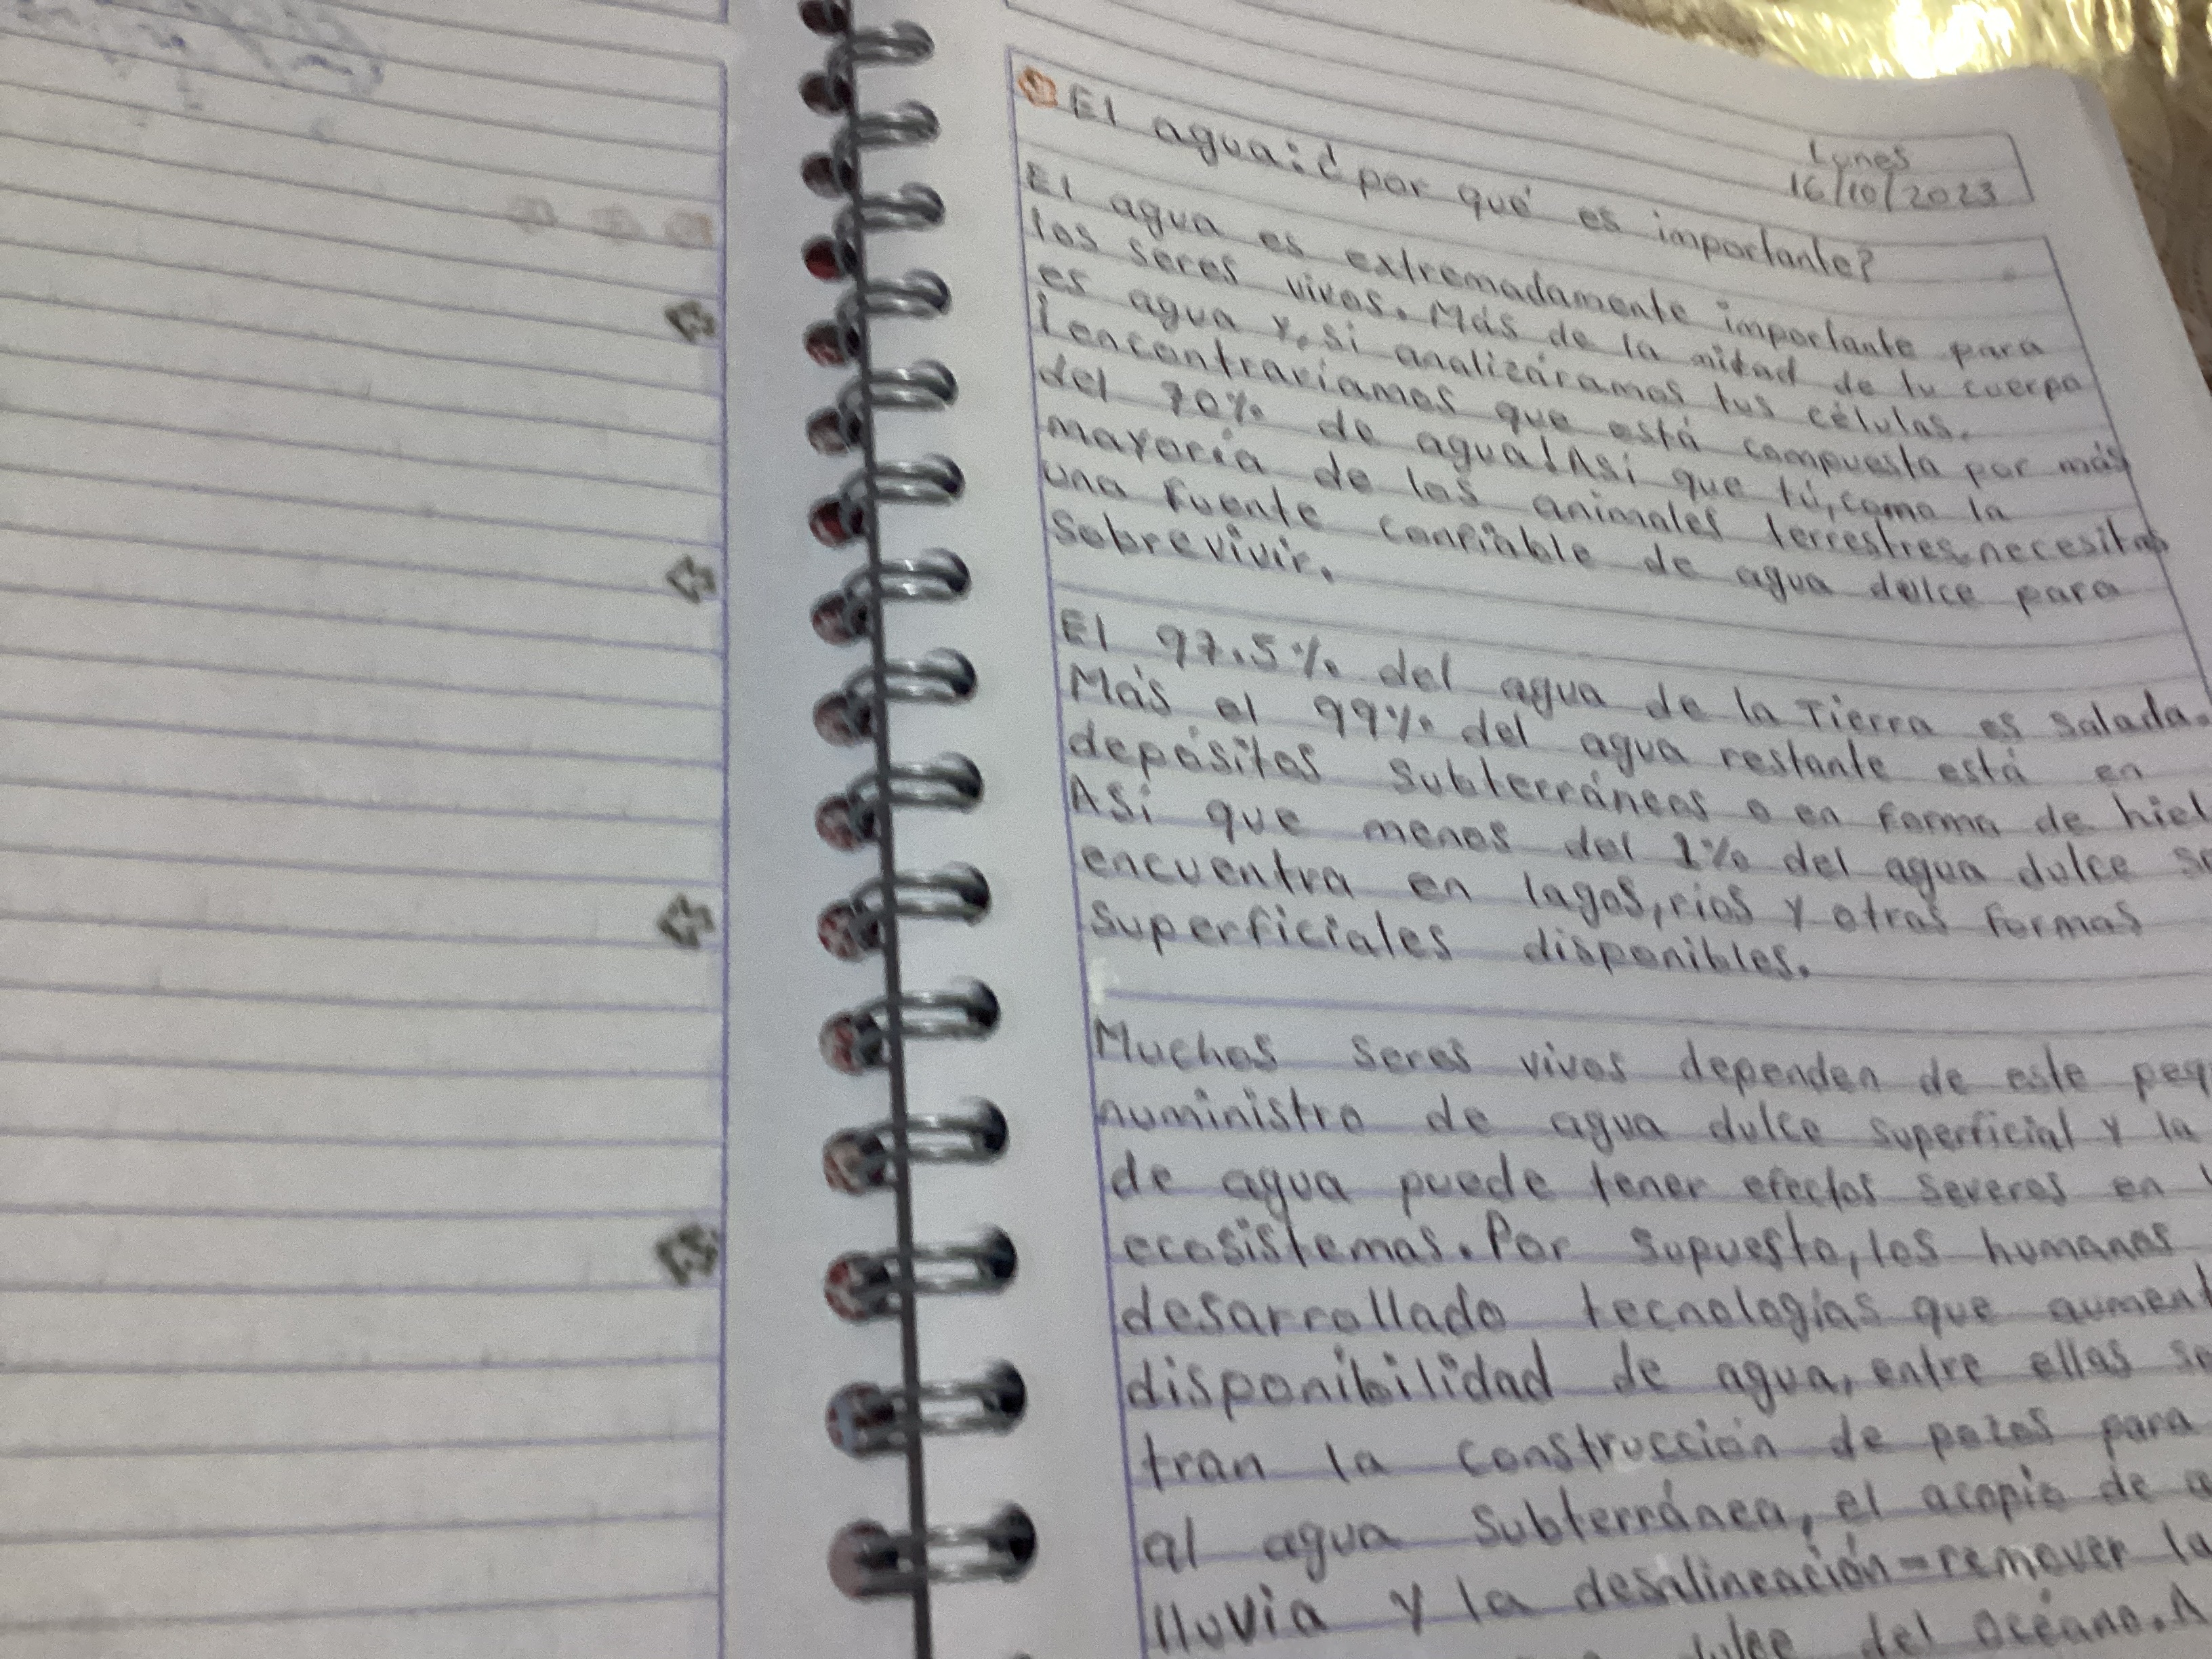 Lunes
16/10/2023
El agua:¿por qué es importante?
El agua es extremadamente importante para
los seres vivos. Más de la mitad de tu cuerpo
es agua y, si analizáramos tus células.
¡encontraríamos que está compuesta por más
del 70% de agua! Así que tú, como la
mayoría de los animales terrestres, necesitas
una fuente confiable de agua dulce para
sobrevivir.
El 97.5% del agua de la Tierra es salada.
Más el 99% del agua restante está en
depósitos subterráneos o en forma de hiel
Así que menos del 1% del agua dulce se
encuentra en lagos, ríos y otras formas
superficiales disponibles.
Muchos seres vivos dependen de este peq
nuministro de agua dulce superficial y la
de agua puede tener efectos severos en
ecosistemas. Por supuesto, los humanos
desarrollado tecnologías que aument
disponibilidad de agua, entre ellas se
tran la construcción de pozos para
al agua subterránea, el acopio de a
lluvia y la desalineación-remover la
dulce del océano. A